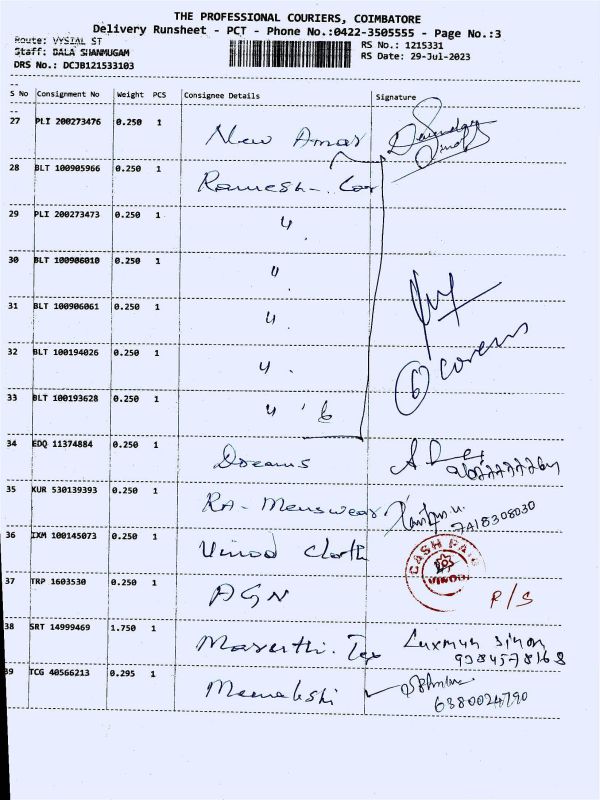 THE PROFESSIONAL COURIERS, COIMBATORE
Delivery Runsheet - PCT - Phone No.:0422-3505555 - Page No.:3
Route: VYSIAL ST
Staff: DALA SHANMUGAM
DRS No.: DCJB121533103
RS No.: 1215331
RS Date: 29-Jul-2023
S No Consignment No Weight PCS Consignee Details Signature
27 PLI 200273476 0.250 1 New Amar
28 BLT 100905966 0.250 1 Ramesh
29 PLI 200273473 0.250 1 "
30 BLT 100906010 0.250 1 "
31 BLT 100906061 0.250 1 "
32 BLT 100194026 0.250 1 "
33 BLT 100193628 0.250 1 " 6
6 covers
34 EDQ 11374884 0.250 1 Dreams
35 KUR 530139393 0.250 1 RA - Menswear
7418308030
36 IXM 100145073 0.250 1 Vinod Cloth
CASH PAID
VINOD
37 TRP 1603530 0.250 1 AGN P/S
38 SRT 14999469 1.750 1 Maruthi. Tex
39 TCG 40566213 0.295 1 Meenakshi
6380024790